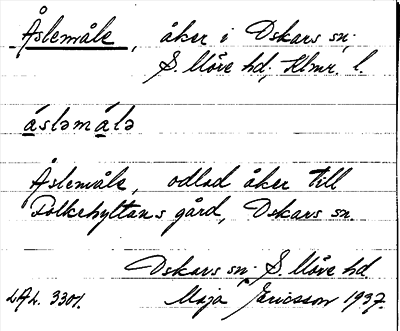 Åslemåle, åker i Oskars sn.
S. Möre hd, Klmr. l.
ásləmálə
Åslemåle, odlad åker till
Folkehyltans gård, Oskars sn.
Oskars sn. S. Möre hd.
LAL. 3301. Maja Ericsson 1937.